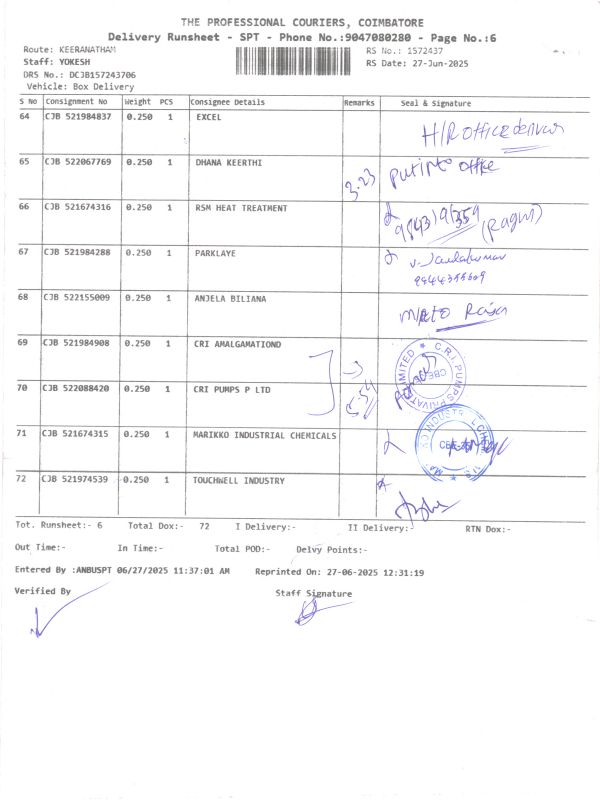 THE PROFESSIONAL COURIERS, COIMBATORE
Delivery Runsheet - SPT - Phone No.:9047080280 - Page No.:6
Route: KEERANATHAM RS No.: 1572437
Staff: YOKESH RS Date: 27-Jun-2025
DRS No.: DCJB157243706
Vehicle: Box Delivery
S No Consignment No Weight PCS Consignee Details Remarks Seal & Signature
64 CJB 521984837 0.250 1 EXCEL
H/R office
65 CJB 522067769 0.250 1 DHANA KEERTHI
3.23 Put into office
66 CJB 521674316 0.250 1 RSM HEAT TREATMENT
9843191359 (Ragu)
67 CJB 521984288 0.250 1 PARKLAYE
68 CJB 522155009 0.250 1 ANJELA BILIANA
69 CJB 521984908 0.250 1 CRI AMALGAMATIOND
70 CJB 522088420 0.250 1 CRI PUMPS P LTD
C.R.I. PUMPS PRIVATE LIMITED
71 CJB 521674315 0.250 1 MARIKKO INDUSTRIAL CHEMICALS
72 CJB 521974539 0.250 1 TOUCHWELL INDUSTRY
Tot. Runsheet:- 6 Total Dox:- 72 I Delivery:- II Delivery:- RTN Dox:-
Out Time:- In Time:- Total POD:- Delvy Points:-
Entered By :ANBUSPT 06/27/2025 11:37:01 AM Reprinted On: 27-06-2025 12:31:19
Verified By Staff Signature